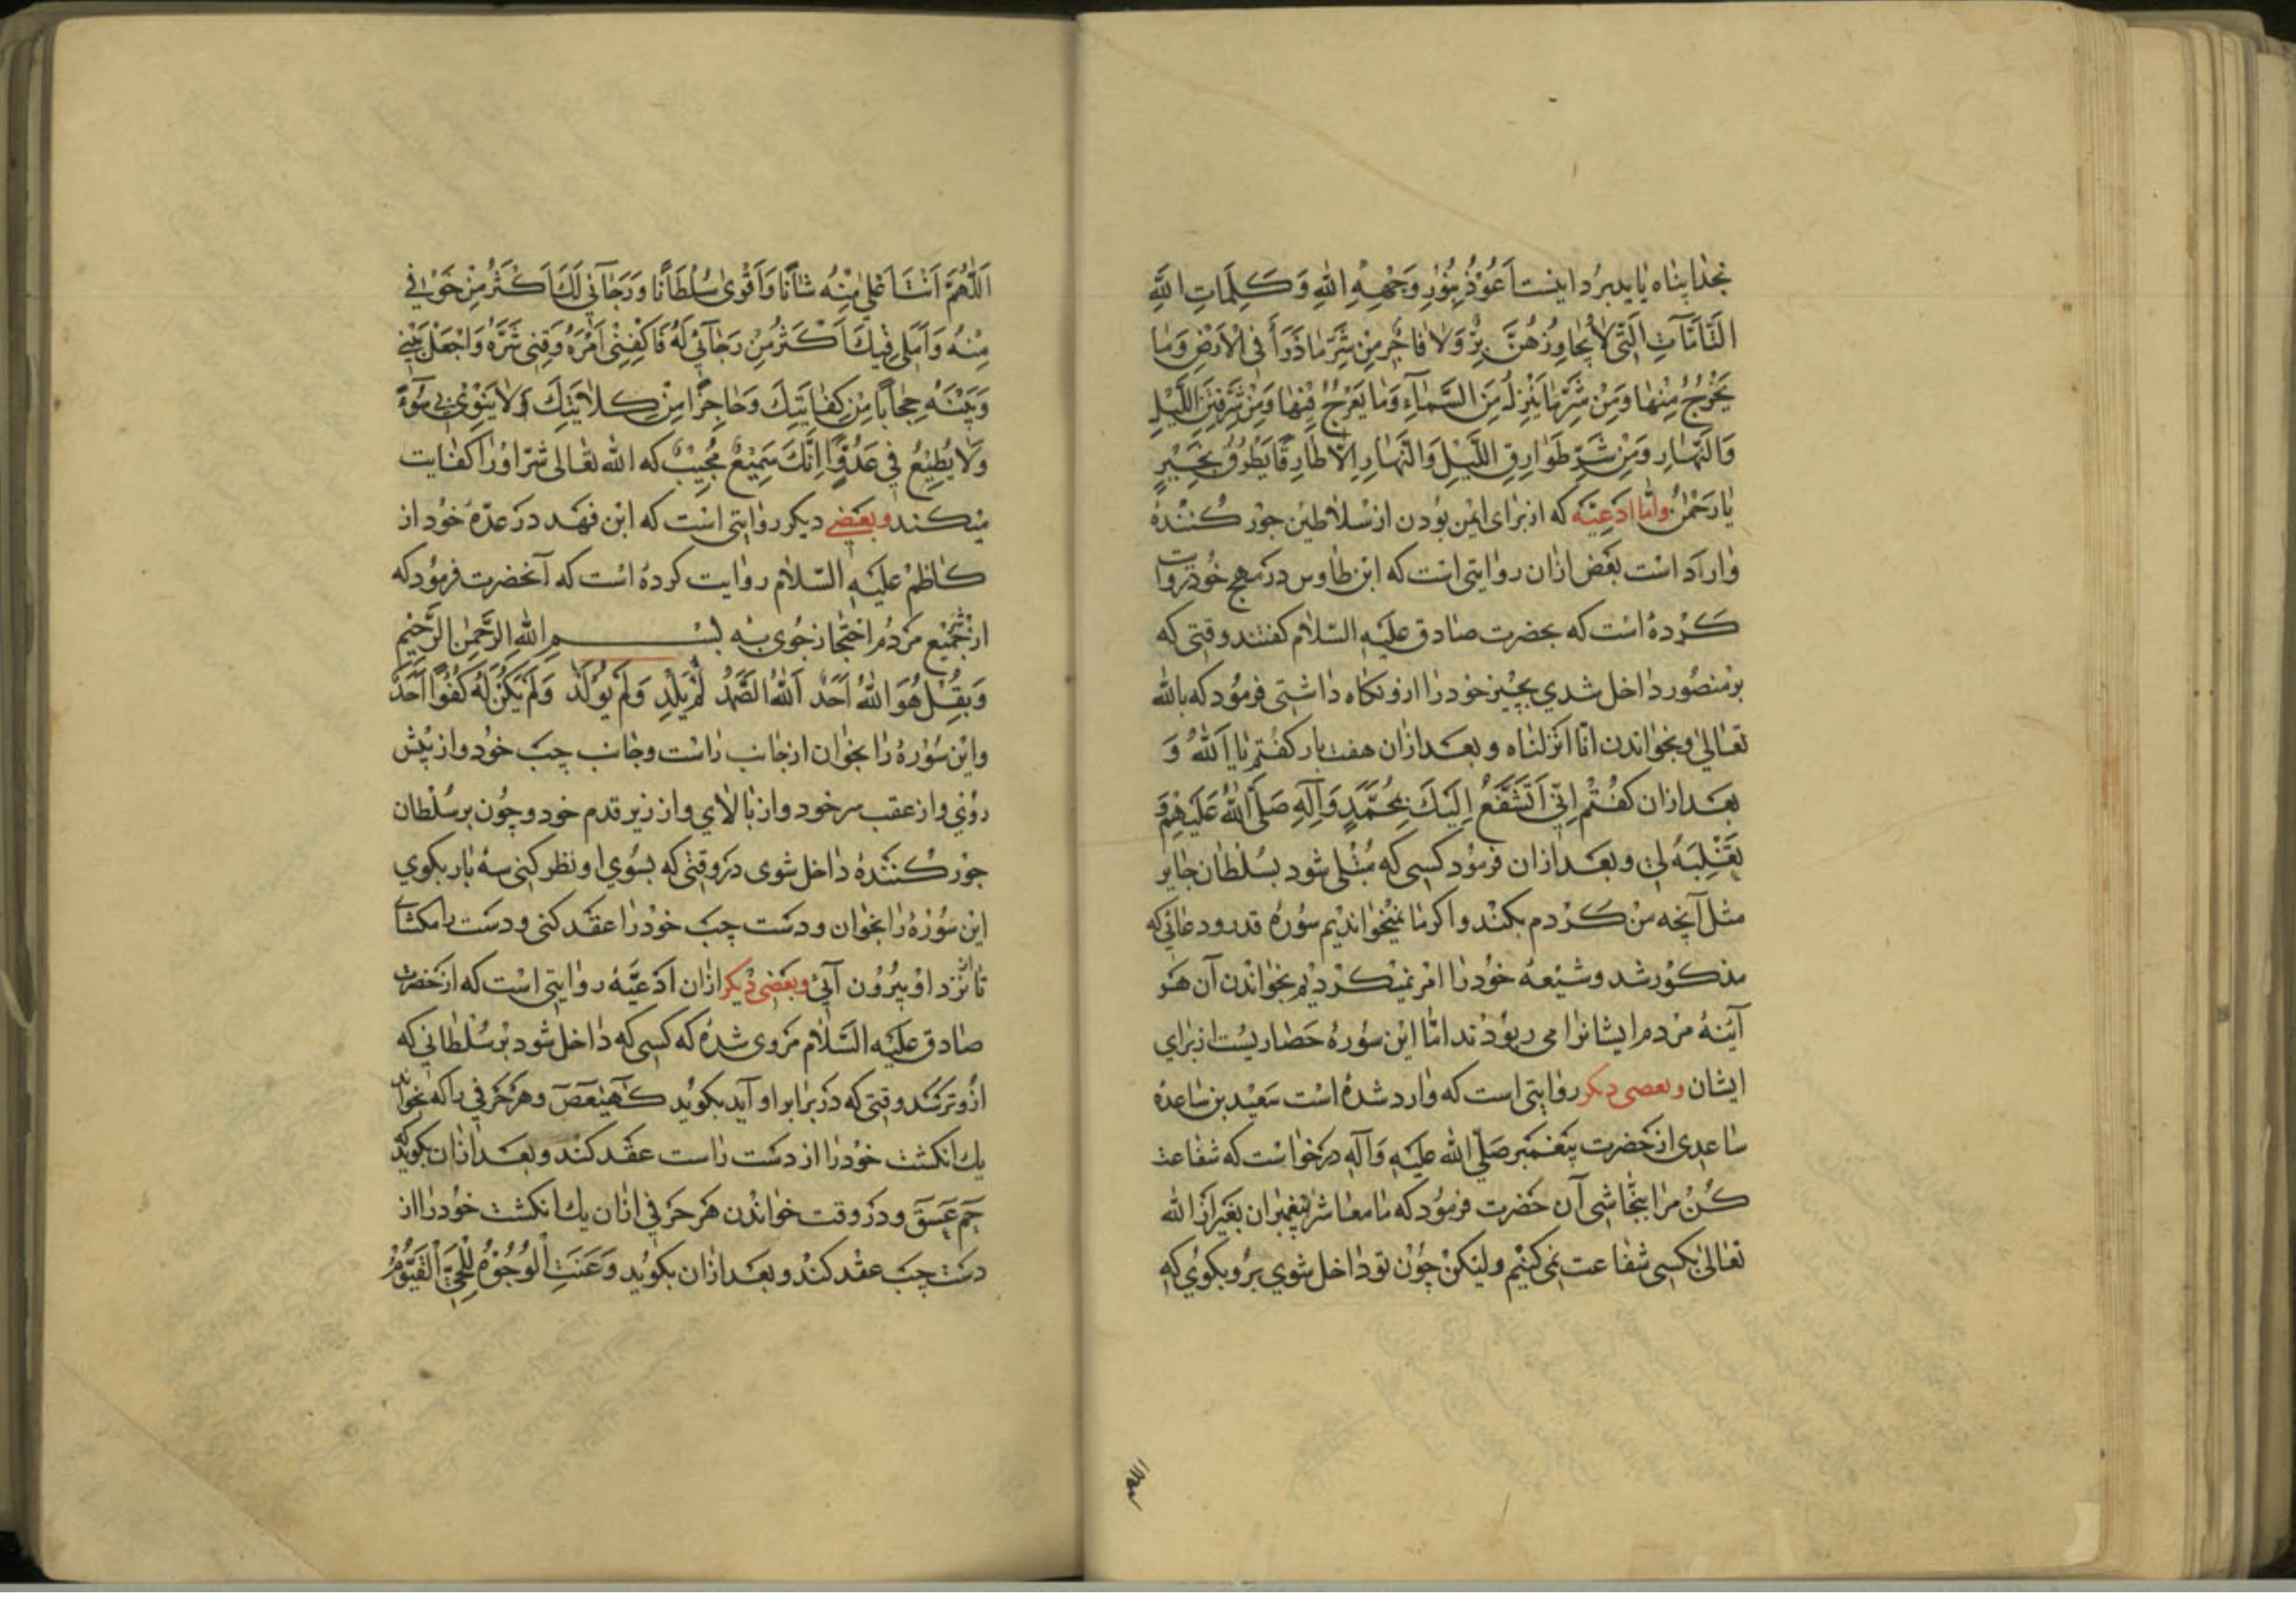 بخدا پناه باید برد اینست اَعُوْذُ بِنُوْرِ وَجْهِ اللهِ وَ كَلِمَاتِ اللهِ
التَّامَّاتِ الَّتِی لَا یُجَاوِزُهُنَّ بَرٌّ وَلَا فَاجِرٌ مِنْ شَرِّ مَا ذَرَأَ فِی الْاَرْضِ وَمَا
یَخْرُجُ مِنْهَا وَمِنْ شَرِّ مَا یَنْزِلُ مِنَ السَّمَآءِ وَمَا یَعْرُجُ فِیْهَا وَمِنْ شَرِّ فِتَنِ اللَّیْلِ
وَالنَّهَارِ وَمِنْ شَرِّ طَوَارِقِ اللَّیْلِ وَالنَّهَارِ اِلَّا طَارِقًا یَطْرُقُ بِخَیْرٍ
یَا رَحْمٰنُ وامّا ادعیّه که از برای ایمن بودن از سلاطین جور کننده
وارد است بعض ازان روایتی است که ابن طاوس در مهج خود روایت
کرده است که بحضرت صادق علیه السلام گفتند وقتی که
بر منصور داخل شدی بچیز خود را ازو نگاه داشتی فرمود که بالله
تعالی و بخواندن انا انزلناه و بعد ازان هفت بار گفتم یا اَللهُ وَ
بعد ازان گفتم اِنِّی اَتَشَفَّعُ اِلَیْكَ بِمُحَمَّدٍ وَآلِهِ صَلَّی اللهُ عَلَیْهِمْ وَ
تَقْلِبَهُ لِی و بعد ازان فرمود کسی که مبتلی شود بسلطان جایر
مثل آنچه من کردم بکند و اگر ما نمیخواندیم سوره قدر و دعائی که
مذکور شد و شیعه خود را امر نمیکردیم بخواندن آن هر
آینه مردم ایشانرا می ربودند امّا این سوره حصاریست از برای
ایشان و بعضی دیگر روایتی است که وارد شده است سعید بن ساعده
ساعدی از حضرت پیغمبر صلّی الله علیه وآله درخواست که شفاعت
کُن مرا بنجاشی آن حضرت فرمود که ما معاشر پیغمبران بغیر از الله
تعالی بکسی شفاعت نمی کنیم ولیکن چون تو داخل شوی برو بگوی که
الله
اَللّٰهُمَّ اَنْتَ اَعْلٰی مِنْهُ شَانًا وَاَقْوٰی سُلْطَانًا وَرَجَآئِی لَكَ اَكْثَرُ مِنْ خَوْفِی
مِنْهُ وَاَمَلِی فِیْكَ اَكْثَرُ مِنْ رَجَآئِی لَهُ فَاكْفِنِیْ اَمْرَهُ وَقِنِی شَرَّهُ وَاجْعَلْ بَیْنِی
وَبَیْنَهُ حِجَابًا مِنْ كِفَایَتِكَ وَحَاجِزًا مِنْ كِلَایَتِكَ وَلَا یَنْوِیْ بِی سُوْءً
وَلَا یُطِیْعُ فِیَّ عَدُوًّا اِنَّكَ سَمِیْعٌ مُجِیْبٌ که الله تعالی شرّ او را کفایت
میکند وبعضی دیگر روایتی است که ابن فهد در عدّه خود از
کاظم علیه السّلام روایت کرده است که آنحضرت فرمود که
از جمیع مردم احتجاز جوی به بسم الله الرَّحمن الرَّحیم
وَبِقُلْ هُوَ اللهُ اَحَدٌ اَللهُ الصَّمَدُ لَمْ یَلِدْ وَلَمْ یُوْلَدْ وَلَمْ یَكُنْ لَهُ كُفُوًا اَحَدٌ
واین سوره را بخوان از جانب راست وجانب چپ خود واز پیش
روی واز عقب سر خود واز بالای واز زیر قدم خود و چون بر سلطان
جور کننده داخل شوی در وقتی که بسوی او نظر کنی سه بار بگوی
این سوره را بخوان ودست چپ خود را عقد کنی ودست را مکشای
تا از نزد او بیرون آئی وبعضی دیگر ازان ادعیّه روایتی است که از حضرت
صادق علیه السّلام مروی شده که کسی که داخل شود بر سلطانی که
ازو ترسد وقتی که در برابر او آید بگوید كهیعص وهر حرفی را که بخواند
یك انگشت خود را از دست راست عقد کند وبعد ازان بگوید که
حم عسق ودر وقت خواندن هر حرفی ازان یك انگشت خود را از
دست چپ عقد کند وبعد ازان بگوید وَعَنَتِ الْوُجُوْهُ لِلْحَیِّ الْقَیُّوْمِ